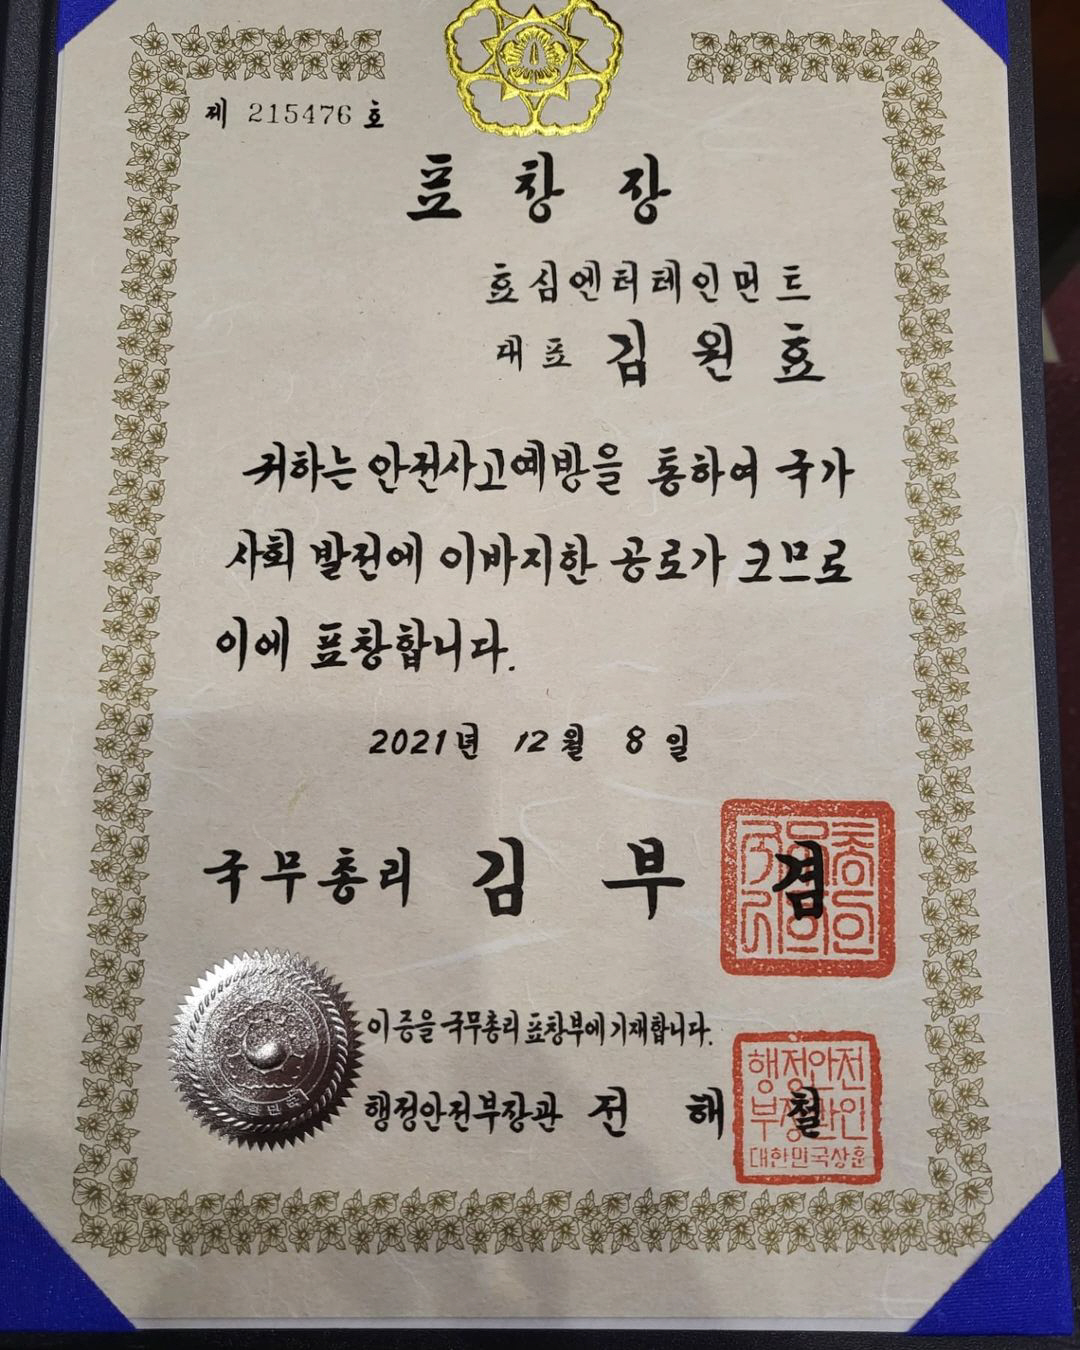 제 215476 호
표 창 장
효심엔터테인먼트
대표 김 원 효
귀하는 안전사고예방을 통하여 국가
사회 발전에 이바지한 공로가 크므로
이에 표창합니다.
2021년 12월 8일
국무총리 김 부 겸
이 증을 국무총리 표창부에 기재합니다.
행정안전부장관 전 해 철
행정안전
부장관인
대한민국상훈